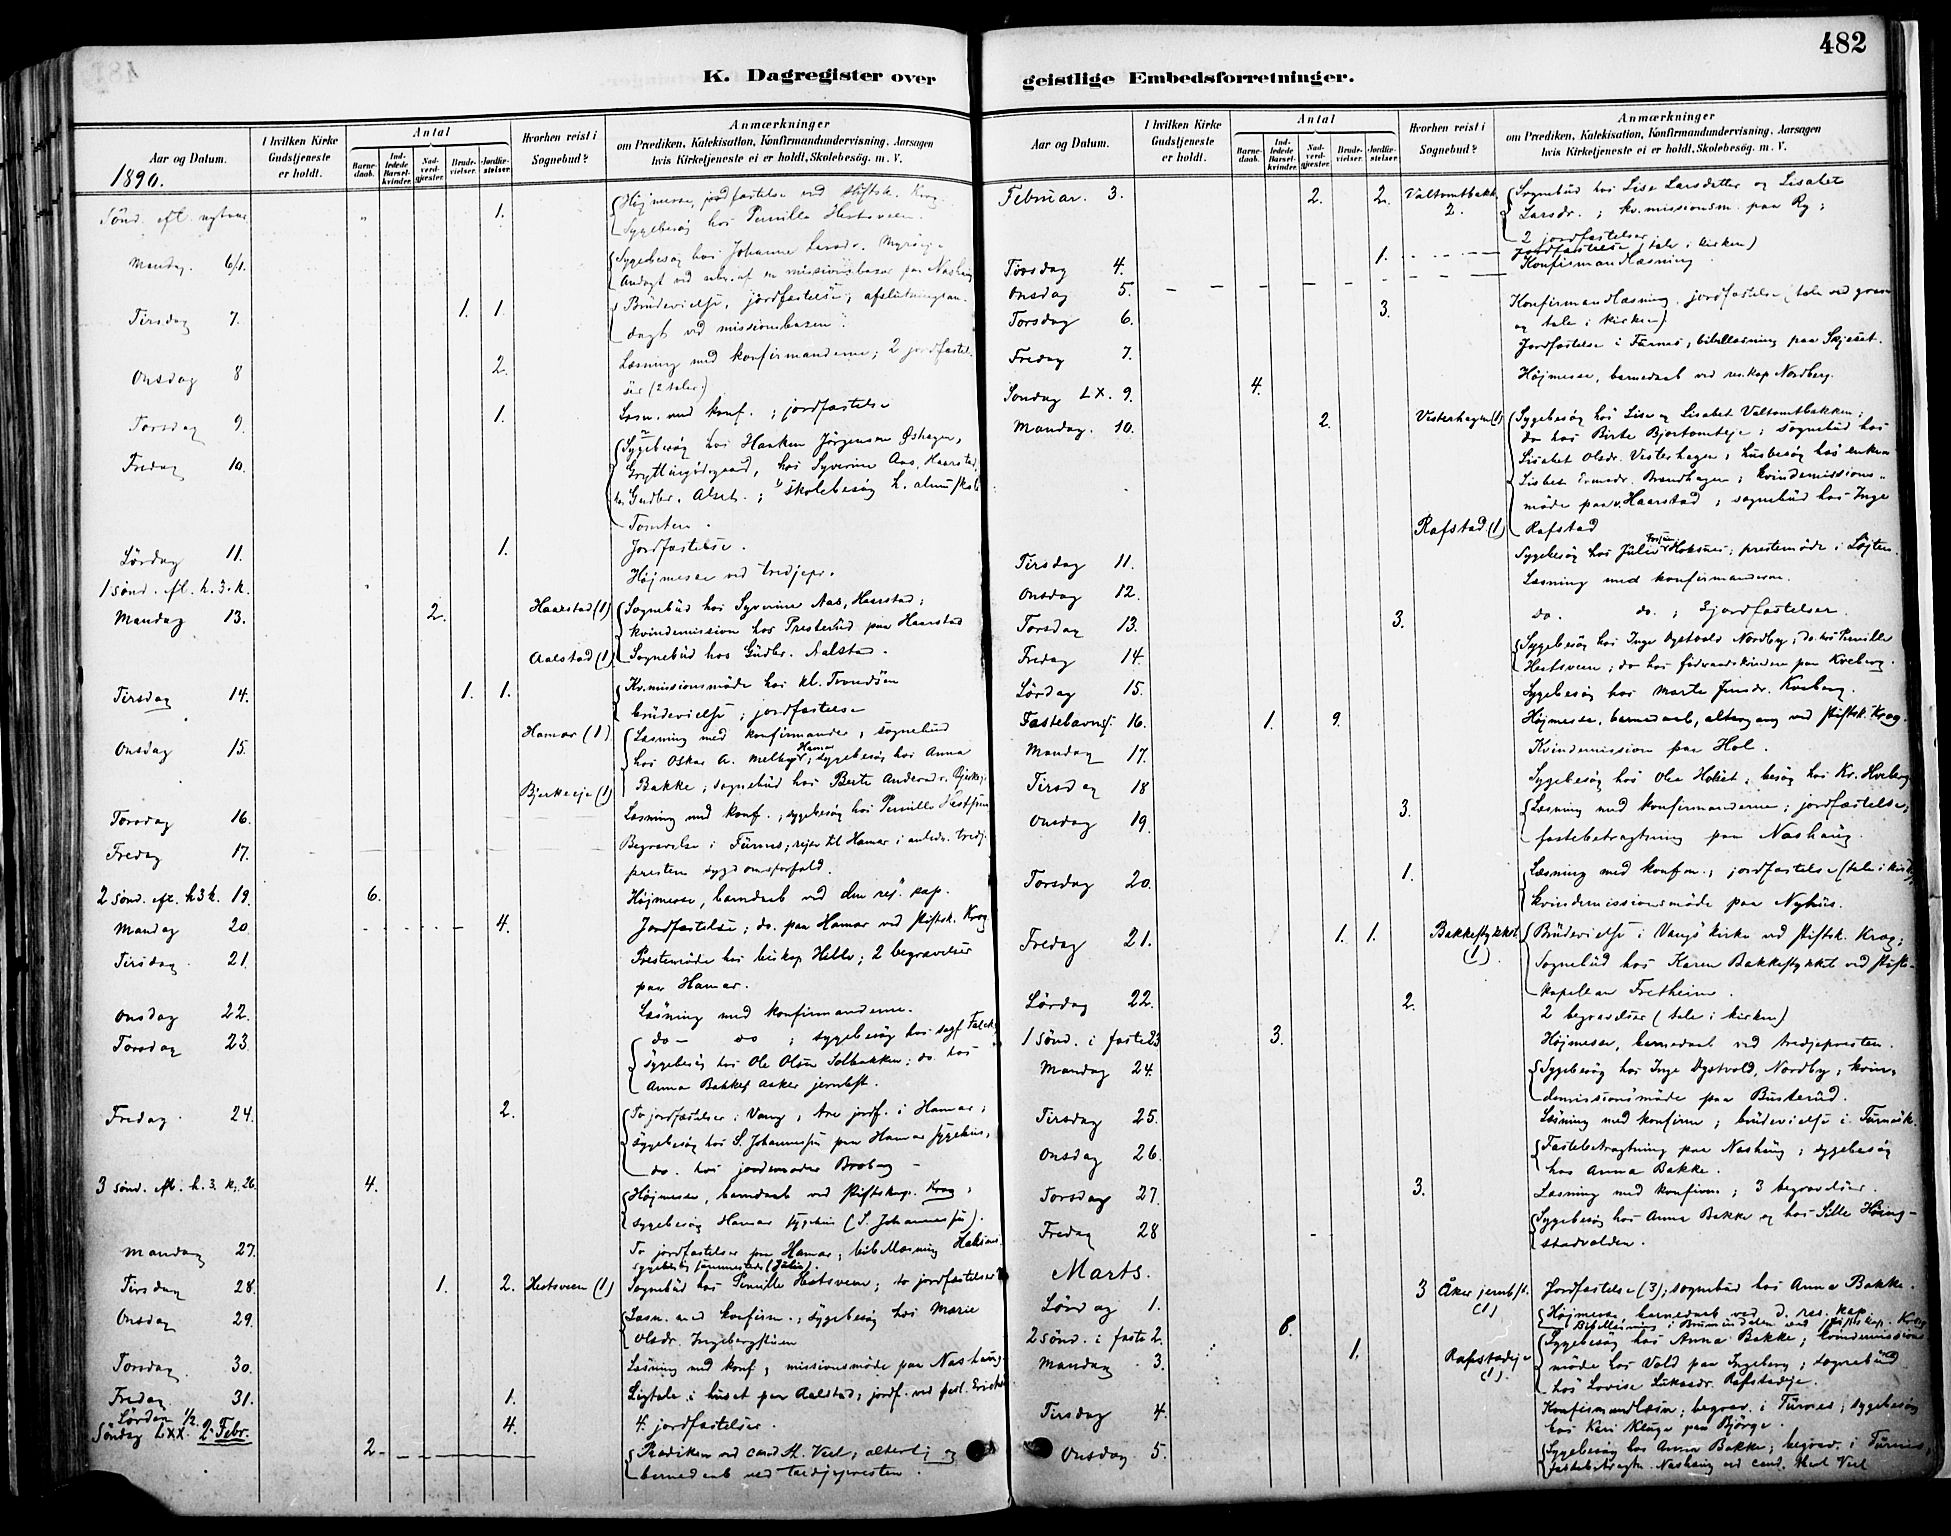 482
K. Dagregister over geistlige Embedsforretninger.
Aar og Datum.
I hvilken Kirke Gudstjeneste er holdt.
Antal
Barnedaab.
Indledede Barselkvinder.
Nadverdgjester.
Brudevielser.
Jordfæstelser.
Hvorhen reist i Sognebud?
Anmærkninger
om Prædiken, Katekisation, Konfirmandundervisning, Aarsagen
hvis Kirketjeneste ei er holdt, Skolebesög. m. V.
1890.
Sönd. eft. nytaar 1. Höjmesse, jordfæstelse ved stiftsk. Krog.
Sygebesög hos Pernille Hestsveen.
Mandag. 6/1. Sygebesög hos Johanne Larsdr.
Andagt ved af en missionsbasar paa Nashaug
Tirsdag 7. 1. 1. Brudevielse, jordfæstelse; afslutningsan-
dagt ved missionsbasaren.
Onsdag 8 2. Læsning med konfirmanderne; 2 jordfæstel-
ser (2 taler)
Torsdag 9. 1. Læsn. med konf.; jordfæstelse
Fredag 10. Sygebesög hos Haaken Jörgensen Öshagen,
hos Syverine Aas, Haarstad,
Gudbr. Alset.; skolebesög
Tomten.
Lördag 11. 1. Jordfæstelse.
1 sönd. eft. h. 3. k. Höjmesse ved tredjepr.
Mandag 13. 2. Haarstad (1) Sognebud hos Syverine Aas, Haarstad;
kvindemission hos Presterud paa Haarstad
Aalstad (1) Sognebud hos Gudbr. Aalstad.
Tirsdag 14. 1. 1. Kv. missionsmöde hos kl. Trondsen
brudevielse; jordfæstelse
Onsdag 15. Hamar (1) Læsning med konfirmander; sognebud
hos Oskar A. Melbye, Hamar; sygebesög hos Anna
Bjerkeeje (1) Bakke; sognebud hos Berte Andersdr. Bjerkeej.
Torsdag 16. Læsning med konf.; sygebesög hos Pernille
Fredag 17. Begravelse i Furnes; rejse til Hamar i anledn. tredje-
prestens sygdomsforfald.
2 sönd. eft. h 3 k. 19. 6. Höjmesse, barnedaab ved den res. kap.
Mandag 20. 4. Jordfæstelse; do. paa Hamar ved stiftsk. Krog
Tirsdag 21. Prestemöde hos biskop Hille; 2 begravelser
paa Hamar.
Onsdag 22. Læsning med konfirmanderne.
Torsdag 23. do - do; sygebesög hos sagf. Falck,
sygebesög hos Ole Olsen Solbakken; do. hos
Anna Bakke, Aaker jernbst.
Fredag. 24. 2. To jordfæstelser i Vang, tre jordf. i Hamar;
sygebesög hos S. Johannessen paa Hamar sygehus,
do. hos jordemoder Braberg -
3 sönd. eft. h. 3. k. 26. 4. Höjmesse, barnedaab ved stiftskap. Krog;
sygebesög Hamar sygehus (S. Johannessen).
Mandag 27. To jordfæstelser paa Hamar; bibellæsning
sygebesög sammesteds (Julie).
Tirsdag 28. 1. 2. Hestsveen (1) Sognebud hos Pernille Hestsveen; to jordfæstelser
Onsdag 29. Læsn. med konfirm.; sygebesög hos Marie
Olsdr. Ingebergstuen
Torsdag. 30. Læsning med konf; missionsmöde paa Nashaug.
Fredag 31. 1. Ligtale i huset paa Aalstad; jordf. ved
Lördag 1/2. 4. 4 jordfæstelser.
Söndag LXX. 2. Febr. 2 - Prædiken ved cand. th. Veel, alterg. og
barnedaab ved tredjepresten.
Aar og Datum.
I hvilken Kirke Gudstjeneste er holdt.
Antal
Barnedaab.
Indledede Barselkvinder.
Nadverdgjester.
Brudevielser.
Jordfæstelser.
Hvorhen reist i Sognebud?
Anmærkninger
om Prædiken, Katekisation, Konfirmandundervisning, Aarsagen
hvis Kirketjeneste ei er holdt, Skolebesög. m. V.
Februar. 3. 2. 2. Valtomtbakk. 2. Sognebud hos Lise Larsdatter og Lisabet
Larsdr.; kv. missionsm. paa Ry;
2 jordfæstelser
Tirsdag 4. 1. Jordfæstelse (tale i kirken)
Onsdag 5. Konfirmandlæsning
Torsdag 6. 3. Konfirmandlæsning. jordfæstelse (tale ved graven
og tale i kirken)
Fredag 7. Jordfæstelse i Furnes, bibellæsning paa Skjeset.
Söndag LX. 9. 4. Höjmesse, barnedaab ved res. kap. Nordberg.
Mandag. 10. 2. Vesterhagen (1) Sygebesög hos Lise og Lisabet Valtomtbakken;
do hos Birte Bjertomteje; sognebud hos
Lisabet Olsdr. Vesterhagen; husbesög hos enken
Lisbet Brandhagen; kvindemissions-
möde paa Haarstad; sognebud hos Inge
Rafstad (1) Rafstad
Tirsdag 11. Sygebesög hos Julie Hoksnes; prestemöde i Löjten.
Onsdag 12. Læsning med konfirmanderne.
Torsdag 13. 3. do. do.; 3 jordfæstelser.
Fredag 14. Sygebesög hos Inge Dystvold, Nordby; do. hos Pernille
Hestsveen; do hos födraadskvinden paa Kveberg.
Lördag 15. Sygebesög hos Marte Jensdr. Kveberg.
Fastelavns. 16. 1. 9. Höjmesse, barnedaab, altergang ved stiftsk. Krog.
Mandag 17. Kvindemission paa Hol.
Tirsdag 18 Sygebesög hos Olea Holset; besög hos Kr. Hveberg.
Onsdag 19. 3. Læsning med konfirmanderne; jordfæstelse;
fastebetragtning paa Nashaug.
Torsdag 20. 1. Læsning med konfm.; jordfæstelse (tale i kirk.)
kvindemissionsmöde paa Nyhus.
Fredag 21. 1. 1. Bakkestykket (1). Brudevielse i Vangs kirke ved stiftsk. Krog;
Sognebud hos Karen Bakkestykket ved stifts-
kapellan Fretheim.
Lördag 22. 2. 2 begravelser (tale i kirken)
1 sönd. i faste 23 3. Höjmesse, barnedaab ved tredjepresten.
Mandag 24. Sygebesög hos Inge Dystvold, Nordby; kvin-
demissionsmöde paa Busterud.
Tirsdag 25. Læsning med konfirm; brudevielse i Furnes k.
Onsdag 26. Fastebetragtning paa Nashaug; sygebesög
hos Anna Bakke.
Torsdag 27. 3. Læsning med konfirm.; 3 begravelser.
Fredag 28 Sygebesög hos Anna Bakke og hos Sille Höing-
stadvolden.
Marts.
Lördag 1. 3 Åker jernbst. (1) Jordfæstelse (3); sognebud hos Anna Bakke.
2 sönd. i faste 2. 8. Höjmesse, barnedaab ved d. res. kap.
Bibellæsning i Brumundalen ved stiftskap. Krog
Mandag 3. 1. Rafstadeje (1). Sygebesög hos Anna Bakke; kvindemissions
möde hos Vold paa Ingeberg; sognebud
hos Lovise Lukasdr. Rafstadeje.
Tirsdag 4. Konfirmandlæsn; begrav. i Furnes; sygebesög
hos Kari Kluge paa Björge.
Onsdag 5. Sygebesög hos Anna Bakke; begrav. i Furnes,
fastebetragtn. Nashaug ved cand. theol Veel